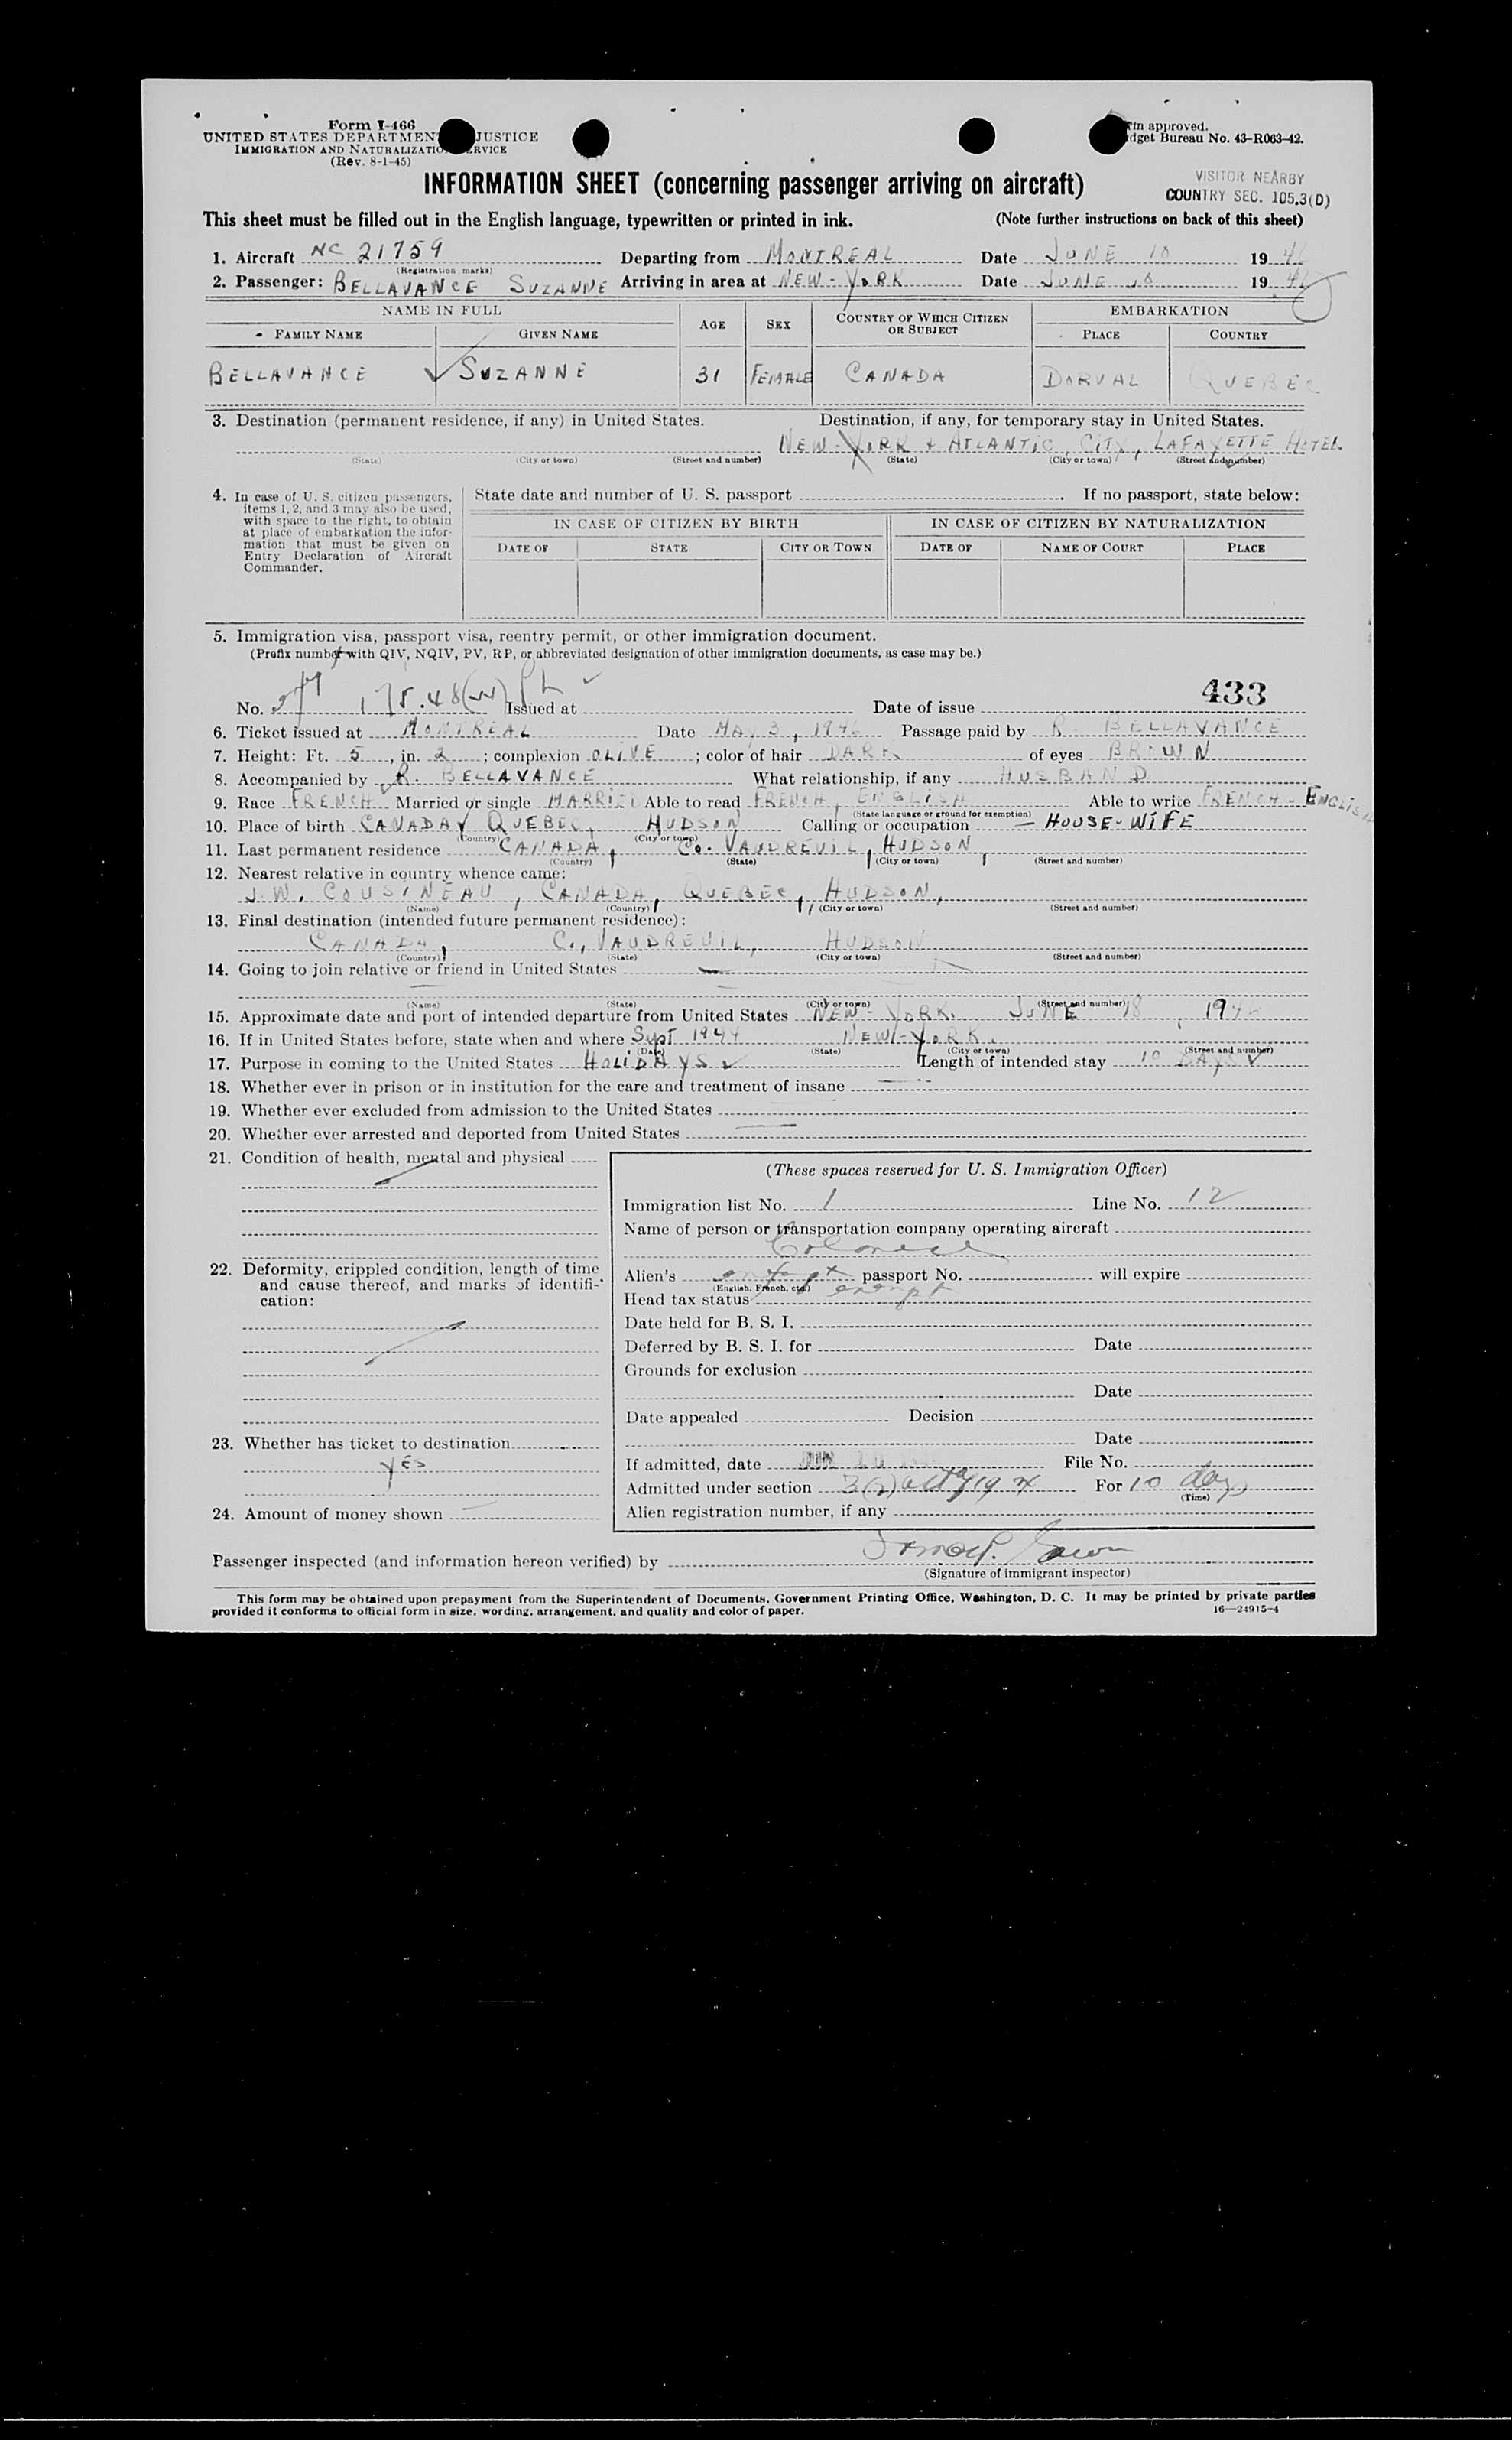 Form I-466
UNITED STATES DEPARTMENT JUSTICE
IMMIGRATION AND NATURALIZATION SERVICE
(Rev. 8-1-45)
approved.
Budget Bureau No. 43-R063-42.
INFORMATION SHEET (concerning passenger arriving on aircraft)
VISITOR NEARBY
COUNTRY SEC. 105.3(D)
This sheet must be filled out in the English language, typewritten or printed in ink. (Note further instructions on back of this sheet)
1. Aircraft NC 21759 Departing from MONTREAL Date JUNE 10 1946
(Registration marks)
2. Passenger: BELLAVANCE SUZANNE Arriving in area at NEW-YORK Date JUNE 10 1946
NAME IN FULL AGE SEX COUNTRY OF WHICH CITIZEN OR SUBJECT EMBARKATION
FAMILY NAME GIVEN NAME PLACE COUNTRY
BELLAVANCE SUZANNE 31 FEMALE CANADA DORVAL QUEBEC
3. Destination (permanent residence, if any) in United States. Destination, if any, for temporary stay in United States.
NEW-YORK + ATLANTIC CITY, LAFAYETTE HOTEL
(State) (City or town) (Street and number) (State) (City or town) (Street and number)
4. In case of U. S. citizen passengers, items 1, 2, and 3 may also be used, with space to the right, to obtain at place of embarkation the information that must be given on Entry Declaration of Aircraft Commander.
State date and number of U. S. passport . If no passport, state below:
IN CASE OF CITIZEN BY BIRTH IN CASE OF CITIZEN BY NATURALIZATION
DATE OF STATE CITY OR TOWN DATE OF NAME OF COURT PLACE
5. Immigration visa, passport visa, reentry permit, or other immigration document.
(Prefix number with QIV, NQIV, PV, RP, or abbreviated designation of other immigration documents, as case may be.)
433
No. 175.48 Issued at Date of issue
6. Ticket issued at MONTREAL Date MAY 3, 1946 Passage paid by R. BELLAVANCE
7. Height: Ft. 5, in. 2; complexion OLIVE; color of hair DARK of eyes BROWN
8. Accompanied by R. BELLAVANCE What relationship, if any HUSBAND
9. Race FRENCH Married or single MARRIED Able to read FRENCH, ENGLISH Able to write FRENCH - ENGLISH
(State language or ground for exemption)
10. Place of birth CANADA, QUEBEC, HUDSON Calling or occupation — HOUSE-WIFE
(Country) (City or town)
11. Last permanent residence CANADA, Co. VAUDREUIL, HUDSON,
(Country) (State) (City or town) (Street and number)
12. Nearest relative in country whence came:
J.W. COUSINEAU, CANADA, QUEBEC, HUDSON,
(Name) (Country) (City or town) (Street and number)
13. Final destination (intended future permanent residence):
CANADA, Co, VAUDREUIL, HUDSON
(Country) (State) (City or town) (Street and number)
14. Going to join relative or friend in United States —
(Name) (State) (City or town) (Street and number)
15. Approximate date and port of intended departure from United States NEW-YORK. JUNE 18, 1946
16. If in United States before, state when and where Sept 1944 NEW-YORK.
(Date) (State) (City or town) (Street and number)
17. Purpose in coming to the United States HOLIDAYS Length of intended stay 10 DAYS
18. Whether ever in prison or in institution for the care and treatment of insane —
19. Whether ever excluded from admission to the United States —
20. Whether ever arrested and deported from United States —
21. Condition of health, mental and physical
22. Deformity, crippled condition, length of time and cause thereof, and marks of identification:
23. Whether has ticket to destination
YES
24. Amount of money shown —
(These spaces reserved for U. S. Immigration Officer)
Immigration list No. 1 Line No. 12
Name of person or transportation company operating aircraft
Colonial
Alien's exempt passport No. will expire
(English, French, etc.)
Head tax status exempt
Date held for B. S. I.
Deferred by B. S. I. for Date
Grounds for exclusion
Date
Date appealed Decision
Date
If admitted, date JUN 10 File No.
Admitted under section 3(2) act of 1924 For 10 days
(Time)
Alien registration number, if any
Passenger inspected (and information hereon verified) by
(Signature of immigrant inspector)
This form may be obtained upon prepayment from the Superintendent of Documents, Government Printing Office, Washington, D. C. It may be printed by private parties
provided it conforms to official form in size, wording, arrangement, and quality and color of paper. 16—24915-4